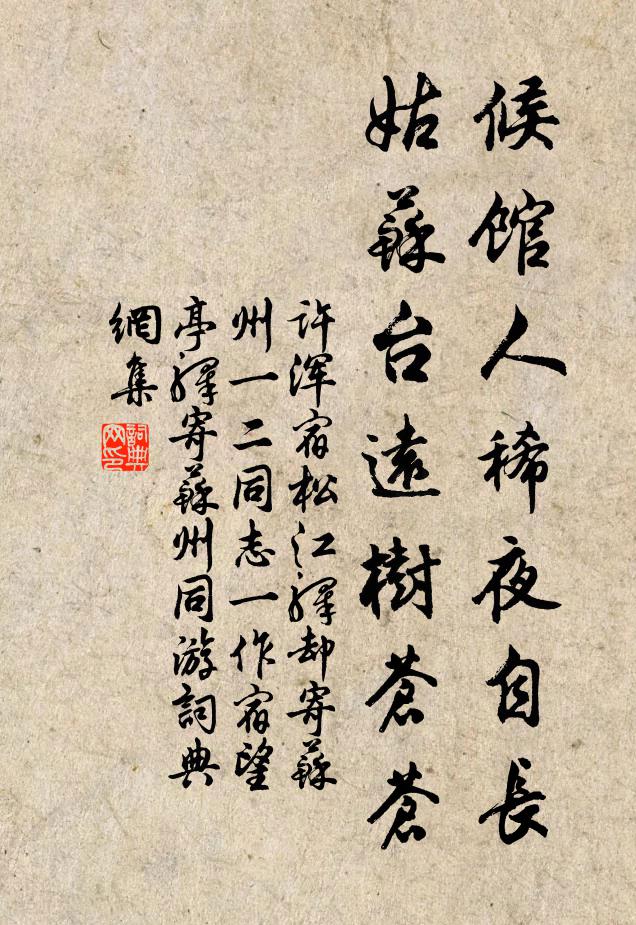 候館人稀夜自長
姑蘇台遠樹蒼蒼
許渾宿松江驛却寄蘇
州一二同志一作宿望
亭驛寄蘇州同游詞典
網集
詞典
网印